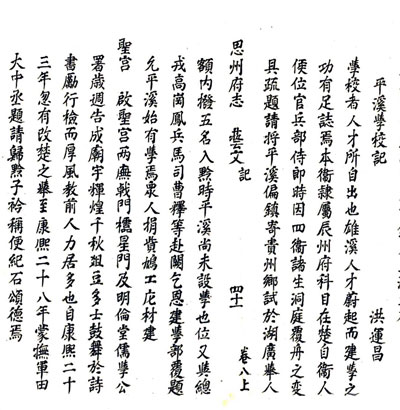 平溪學校記
洪運昌
學校者人才所自出也雄溪人才蔚起而建學之
功有足誌焉本衞隸屬辰州府科目在楚自衞人
便位官兵部侍郎時因四衞諸生洞庭覆舟之变
具疏題請將平溪偏鎮寄貴州鄉試於湖廣舉人
思州府志 藝文記 四十 卷八上
額内撥五名入黔時平溪尚未設學也位又與總
戎高崗鳳兵馬司曹繹等赴闕乞恩建學部覆題
允平溪始有學焉衆人捐貲鳩工庀材建
聖宫 啟聖宫兩廡戟門櫺星門及明倫堂儒學公
署歲週告成廟宇輝煌千秋俎豆多士鼓舞於詩
書勵行檢而厚風教前人力居多也自康熙二十
三年忽有改楚之舉至康熙二十八年蒙撫軍田
大中丞題請歸黔子衿稱便紀石頌德焉